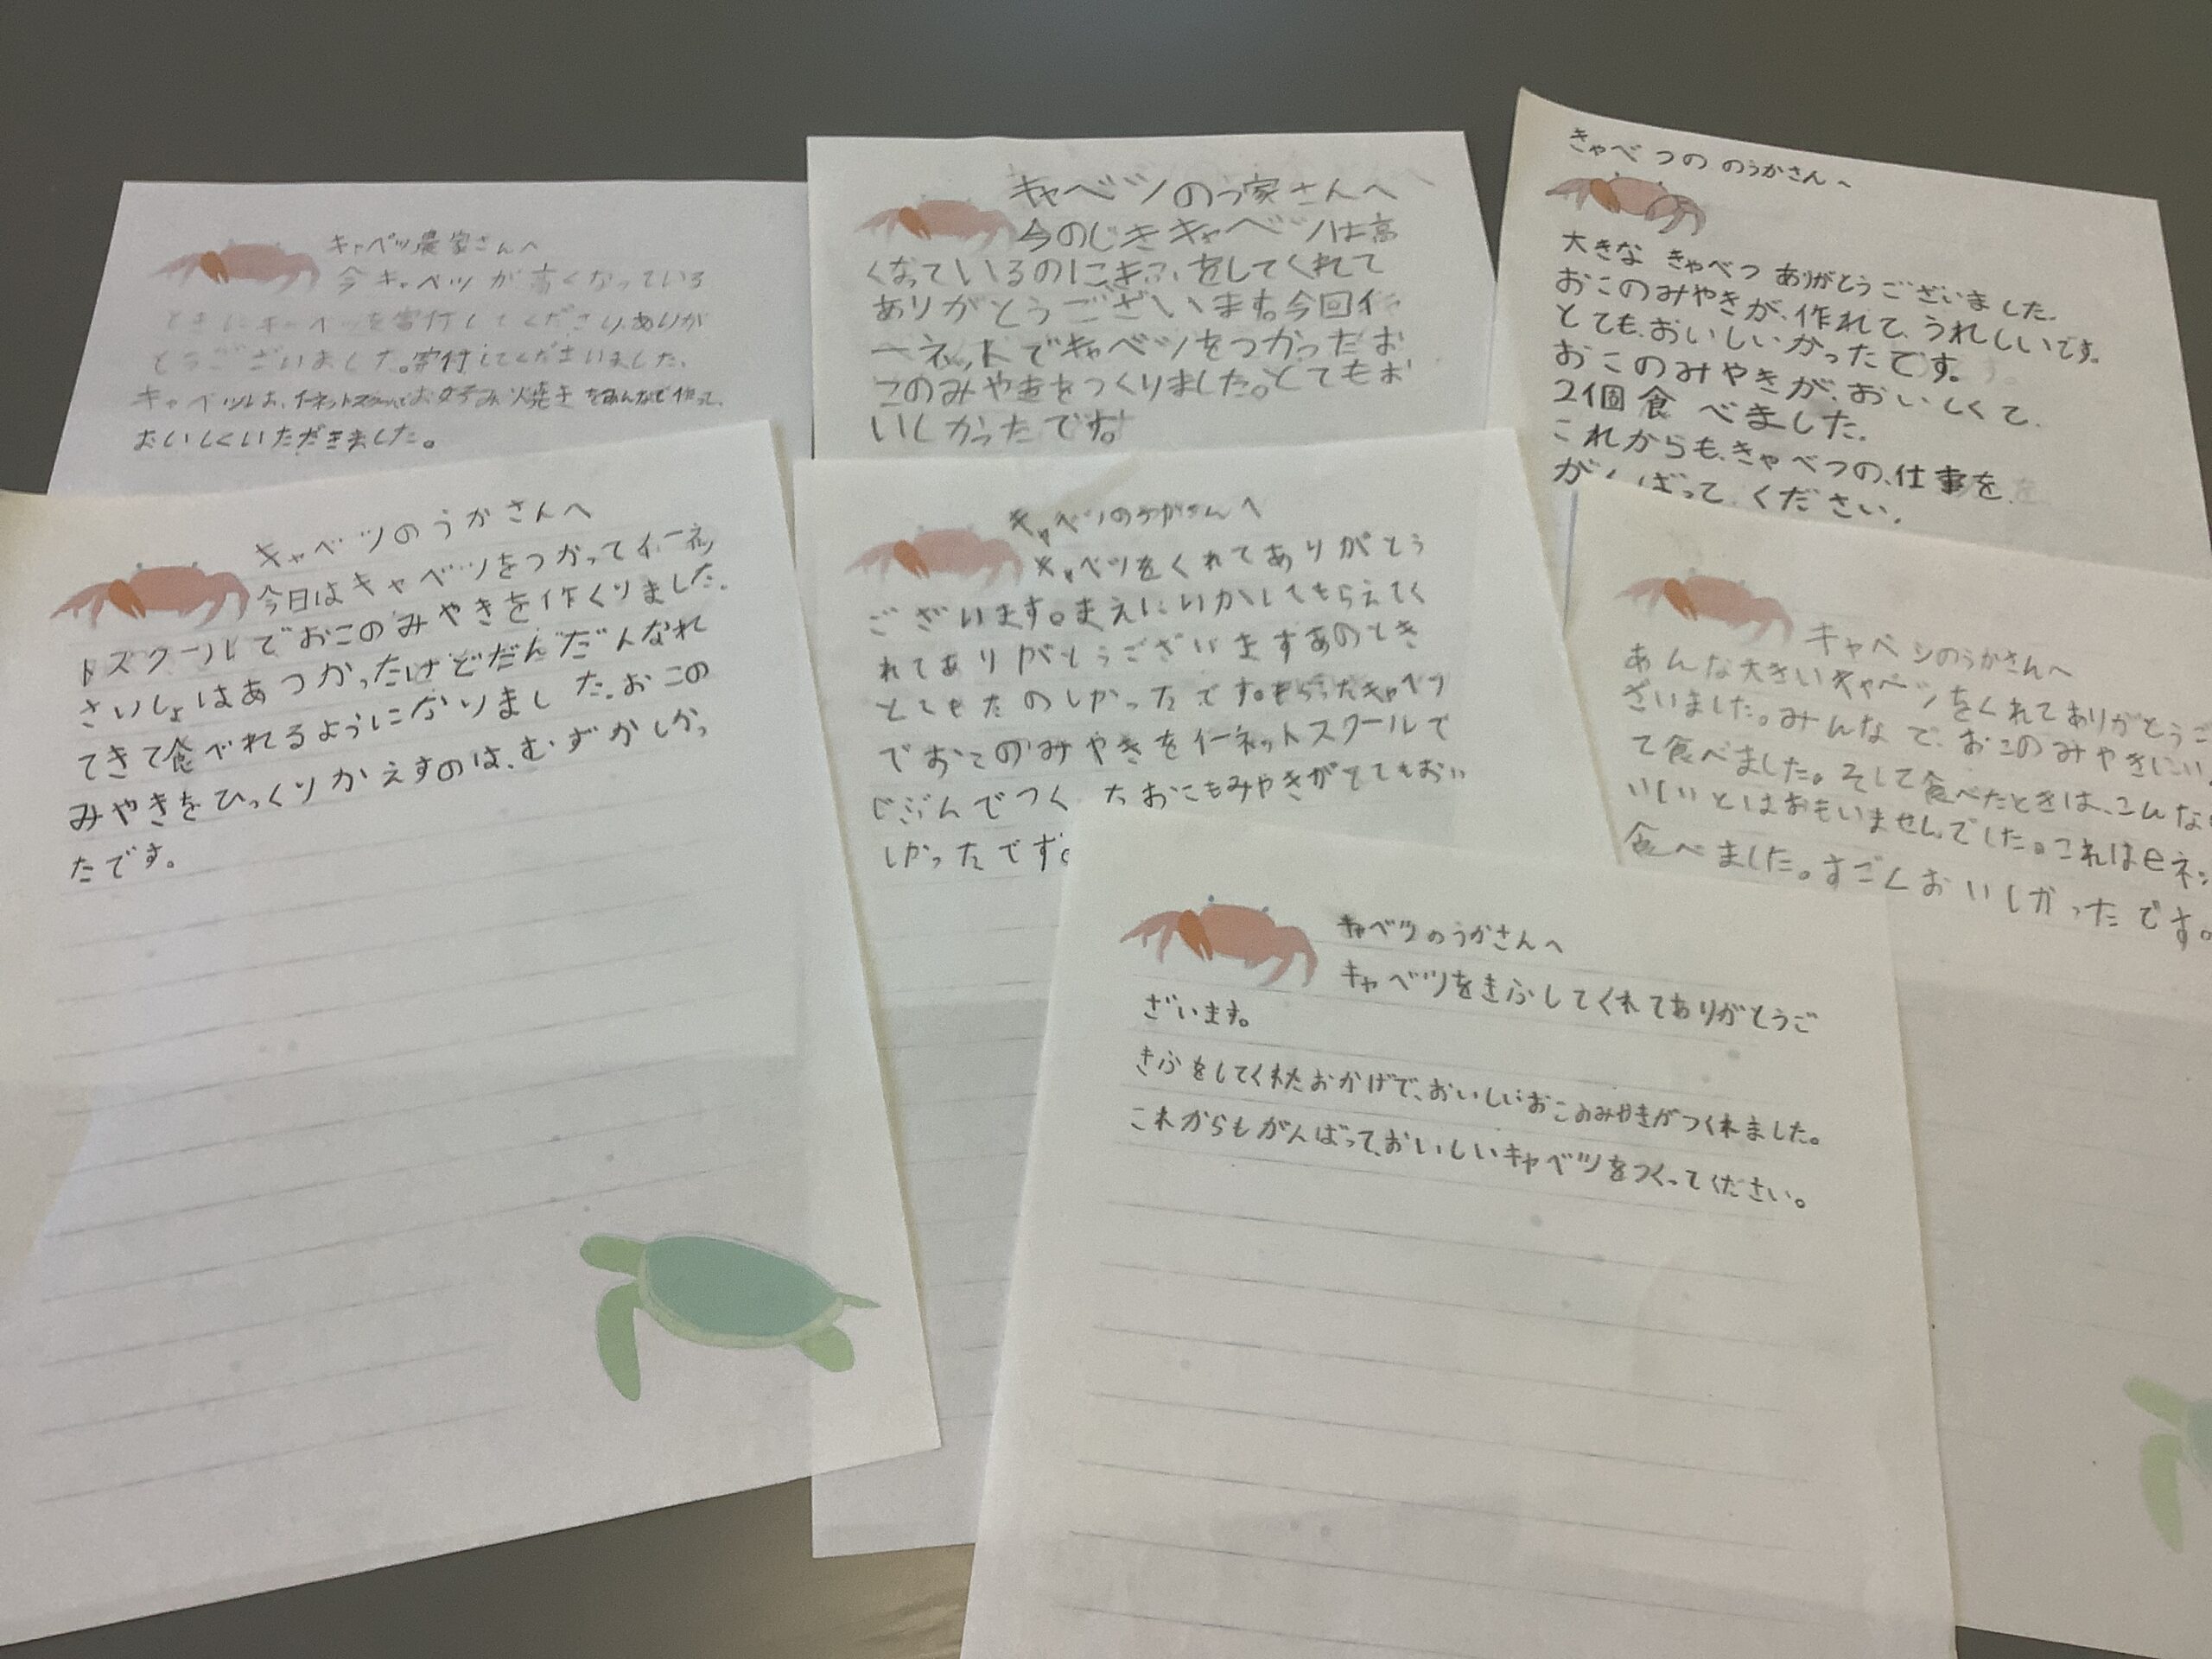 キャベツ農家さんへ
今キャベツが高くなっている
ときにキャベツを寄付してくださりありが
とうございました。寄付してくださいました、
キャベツは、イーネットスクールでお好み焼きをみんなで作って、
おいしくいただきました。
キャベツのう家さんへ
今のじきキャベツは高
くなっているのにきふをしてくれて
ありがとうございます。今回イ
ーネットでキャベツをつかったお
このみやきをつくりました。とてもお
いしかったです。
きゃべつの のうかさんへ
大きな きゃべつ ありがとうございました。
おこのみやきが、作れて、うれしいです。
とても、おいしいかったです。
おこのみやきが、おいしくて、
2個食べました。
これからも、きゃべつの、仕事を、
がんばって、ください。
キャベツのうかさんへ
今日はキャベツをつかってイーネッ
トスクールでおこのみやきを作くりました。
さいしょはあつかったけどだんだんなれ
てきて食べれるようになりました。おこの
みやきをひっくりかえすのは、むずかしかっ
たです。
キャベツのうかさんへ
キャベツをくれてありがとう
ございます。まえにいかしてもらえてく
れてありがとうございますあのとき
とてもたのしかったです。もらったキャベツ
でおこのみやきをイーネットスクールで
じぶんでつく たおこもみやきがとてもおい
しかったです。
キャベツのうかさんへ
あんな大きいキャベツをくれてありがとうご
ざいました。みんなで、おこのみやきにい
て食べました。そして食べたときは、こんな
いしいとはおもいませんでした。これはeネッ
食べました。すごくおいしかったです。
キャベツのうかさんへ
キャベツをきふしてくれてありがとうご
ざいます。
きふをしてくれたおかげで、おいしいおこのみやきがつくれました。
これからもがんばって、おいしいキャベツをつくってください。